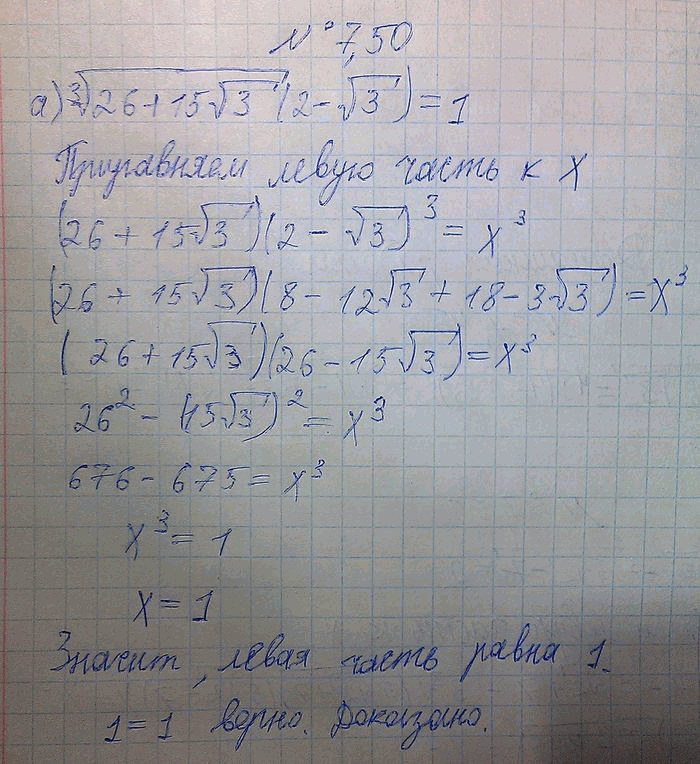 № 7,50
а) ∛(26 + 15√3) (2 - √3) = 1
Приравняем левую часть к X
(26 + 15√3)(2 - √3)³ = x³
(26 + 15√3)(8 - 12√3 + 18 - 3√3) = x³
(26 + 15√3)(26 - 15√3) = x³
26² - (15√3)² = x³
676 - 675 = x³
x³ = 1
x = 1
Значит, левая часть равна 1.
1 = 1 верно. Доказано.